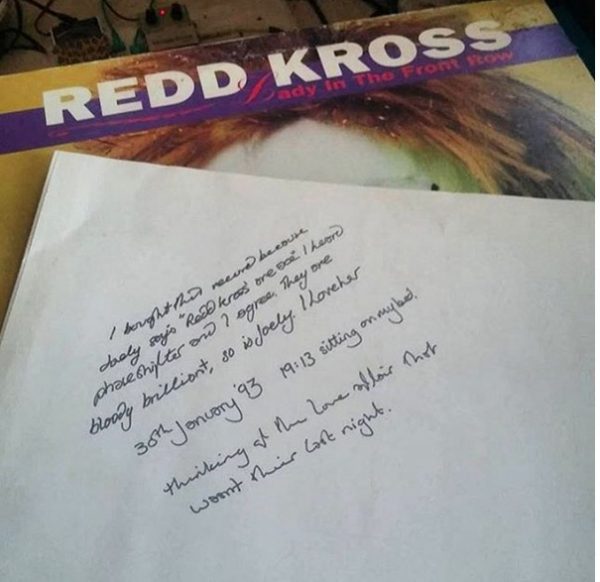 REDD KROSS
Lady In The Front Row
I bought this record because
Jaely says "Redd kross are ace" I heard
phaseshifter and I agree. They are
bloody brilliant, so is Jaely I love her
30th January '93 19:13 sitting on my bed.
thinking of the love affair that
wasnt their last night.